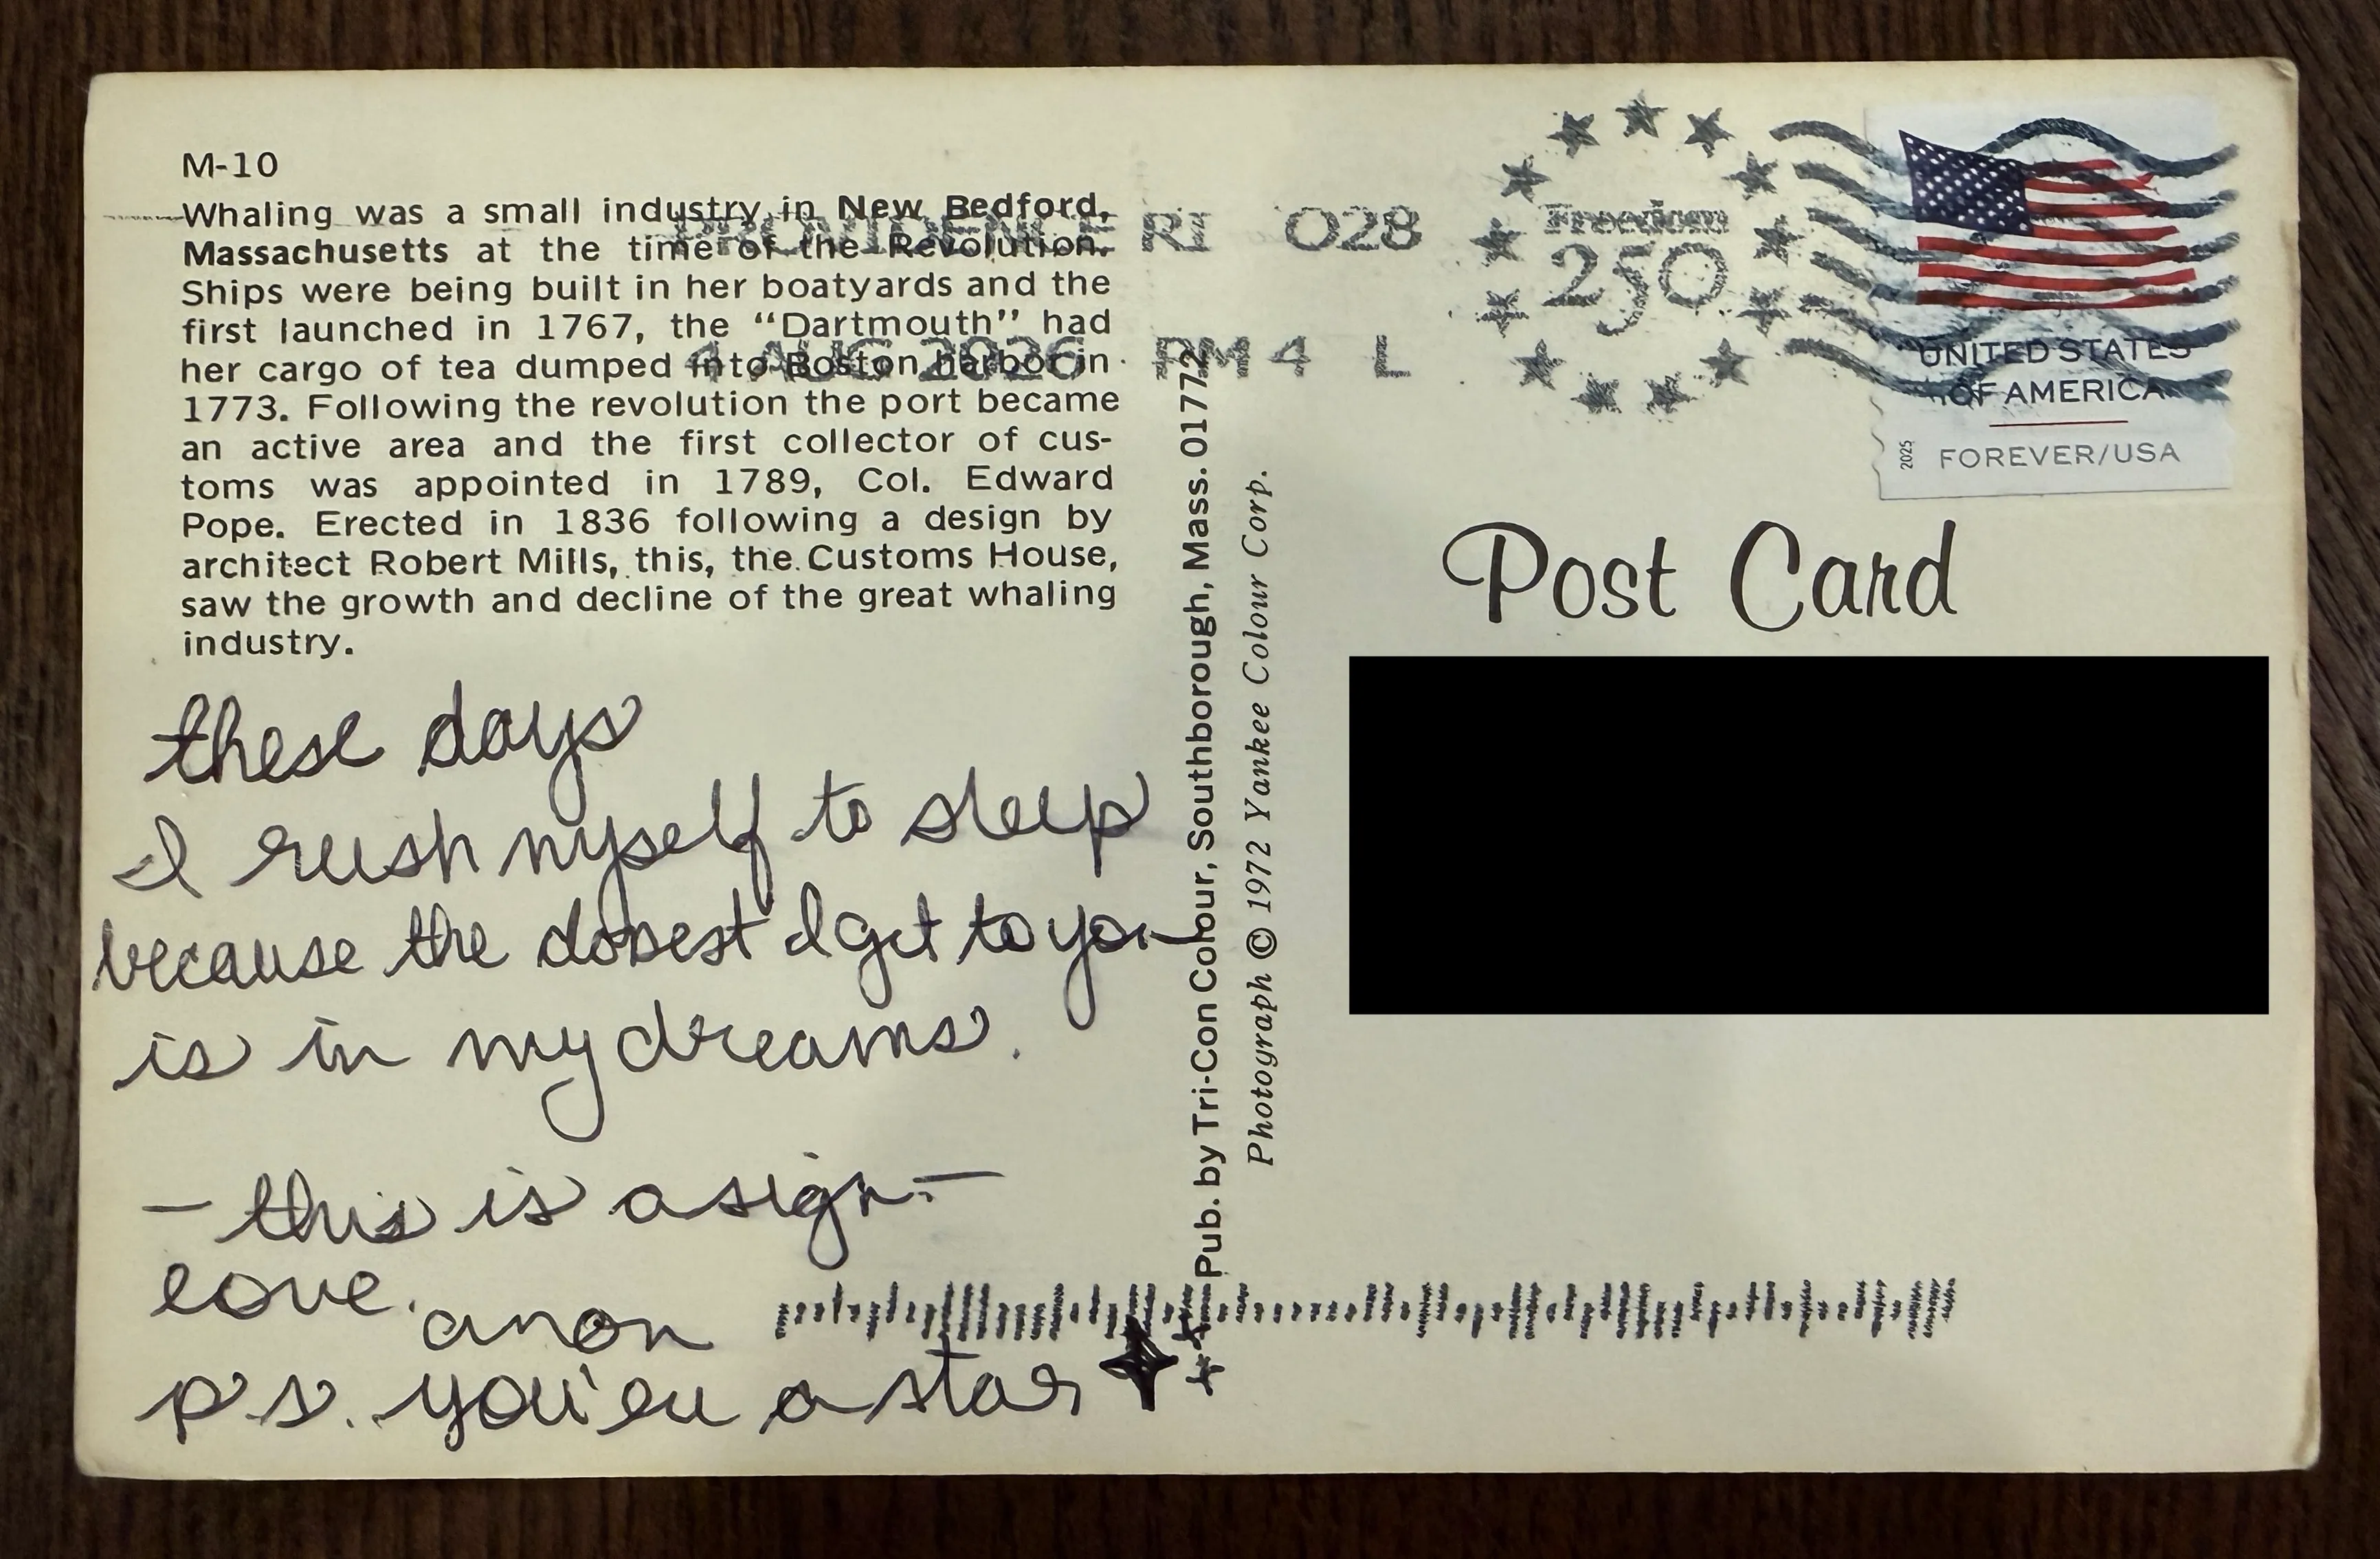 M-10
Whaling was a small industry in New Bedford,
Massachusetts at the time of the Revolution.
Ships were being built in her boatyards and the
first launched in 1767, the “Dartmouth” had
her cargo of tea dumped into Boston harbor in
1773. Following the revolution the port became
an active area and the first collector of cus-
toms was appointed in 1789, Col. Edward
Pope. Erected in 1836 following a design by
architect Robert Mills, this, the Customs House,
saw the growth and decline of the great whaling
industry.
these days
I rush myself to sleep
because the closest I get to you
is in my dreams.
— this is a sign —
love, anon
p.s. you're a star
Pub. by Tri-Con Colour, Southborough, Mass. 01772
Photograph © 1972 Yankee Colour Corp.
PROVIDENCE RI 028
4 AUG 2026 PM 4 L
Freedom
250
UNITED STATES
OF AMERICA
2025
FOREVER/USA
Post Card